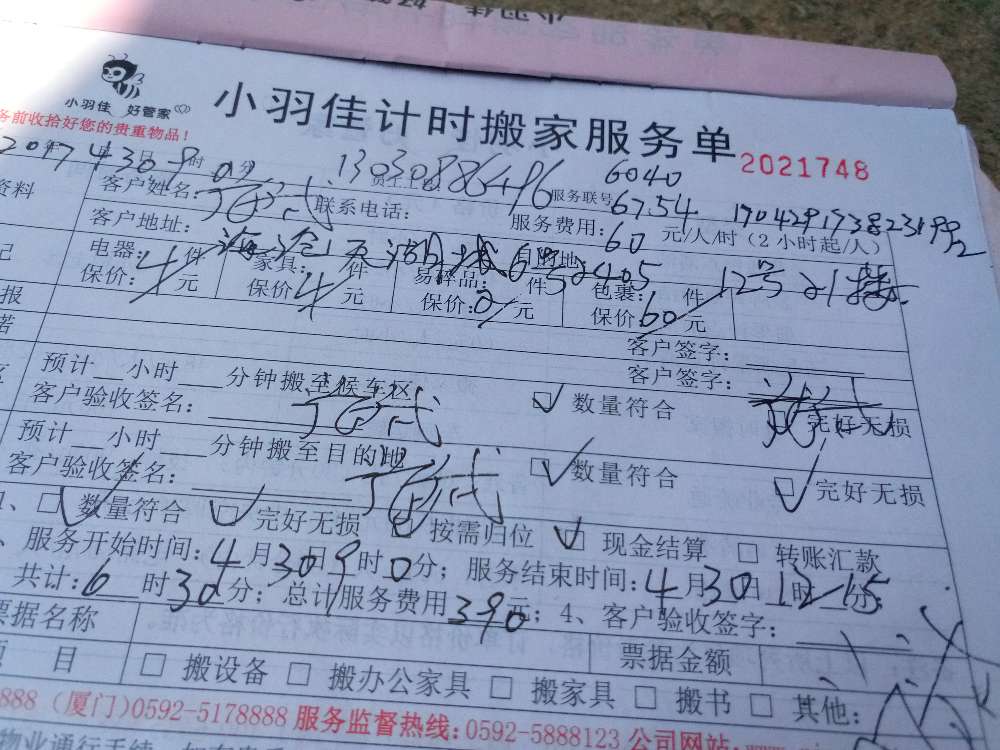 小羽佳 好管家
小羽佳计时搬家服务单
2021748
务前收拾好您的贵重物品！
2017年4月30日9时0分
13030886496
6040
资料
客户姓名：
联系电话：
服务联号
6754
客户地址：
服务费用：60元/人/时（2小时起/人）
电器：4件
家具：件
易碎品：件
目的地
包裹：件
12号
保价：元
保价：4元
保价：0元
保价：60元
报
客户签字：
客户签字：
预计 小时 分钟搬至候车区
客户验收签名：
数量符合
完好无损
预计 小时 分钟搬至目的地
客户验收签名：
数量符合
完好无损
1、数量符合 完好无损 按需归位 现金结算 转账汇款
、服务开始时间：4月30日9时0分；服务结束时间：4月30日12时15分
共计：6时30分；总计服务费用390元；4、客户验收签字：
票据名称
票据金额
项 目
搬设备 搬办公家具 搬家具 搬书 其他：
888（厦门)0592-5178888 服务监督热线:0592-5888123 公司网站:www.